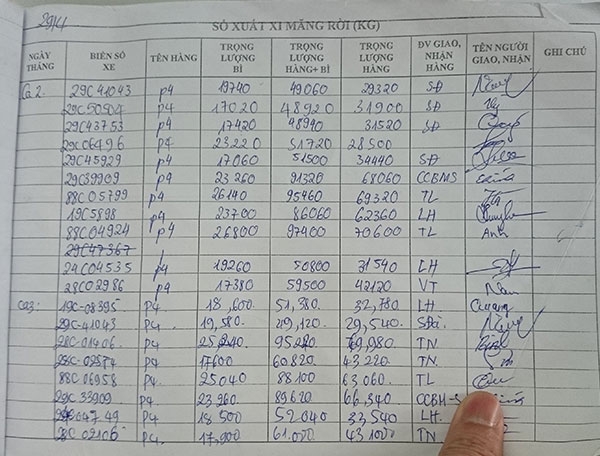 29/4
SỔ XUẤT XI MĂNG RỜI (KG)
NGÀY THÁNG BIỂN SỐ XE TÊN HÀNG TRỌNG LƯỢNG BÌ TRỌNG LƯỢNG HÀNG+ BÌ TRỌNG LƯỢNG HÀNG ĐV GIAO, NHẬN HÀNG TÊN NGƯỜI GIAO, NHẬN GHI CHÚ
Ca 2. 29C41043 P4 19740 49060 29320 SĐ
29C50904 P4 17020 48920 31900 SĐ
29C43753 P4 17420 48940 31520 SĐ
29C06496 P4 23220 51720 28500
29C45929 P4 17060 51500 34440 SĐ
29C39909 P4 23260 91320 68060 CCBMS
88C05799 P4 26140 95460 69320 TL
19C5898 P4 23700 86060 62360 LH
88C04924 P4 26800 97400 70600 TL Anh
29C47367
24C04535 P4 19260 50800 31540 LH
28C02986 P4 17380 59500 42120 VT
Ca3: 19C-08395 P4 18,600. 51,380. 32,780 LH Cương
29C-41043 P4. 19,580. 49,120. 29,540.
28C-01406. P4 25,240 95220 69,980 TN
28C-02874 P4 17600 60820 43220 TN.
88C 06958 P4 25040 88100 63060 TL
29C 33909 P4 23260 89620 66,340 CCBM-S
047 49 P4 18 500 52040 33,540 LH.
28C 02106 P4. 17,900 61.000 43100 TN